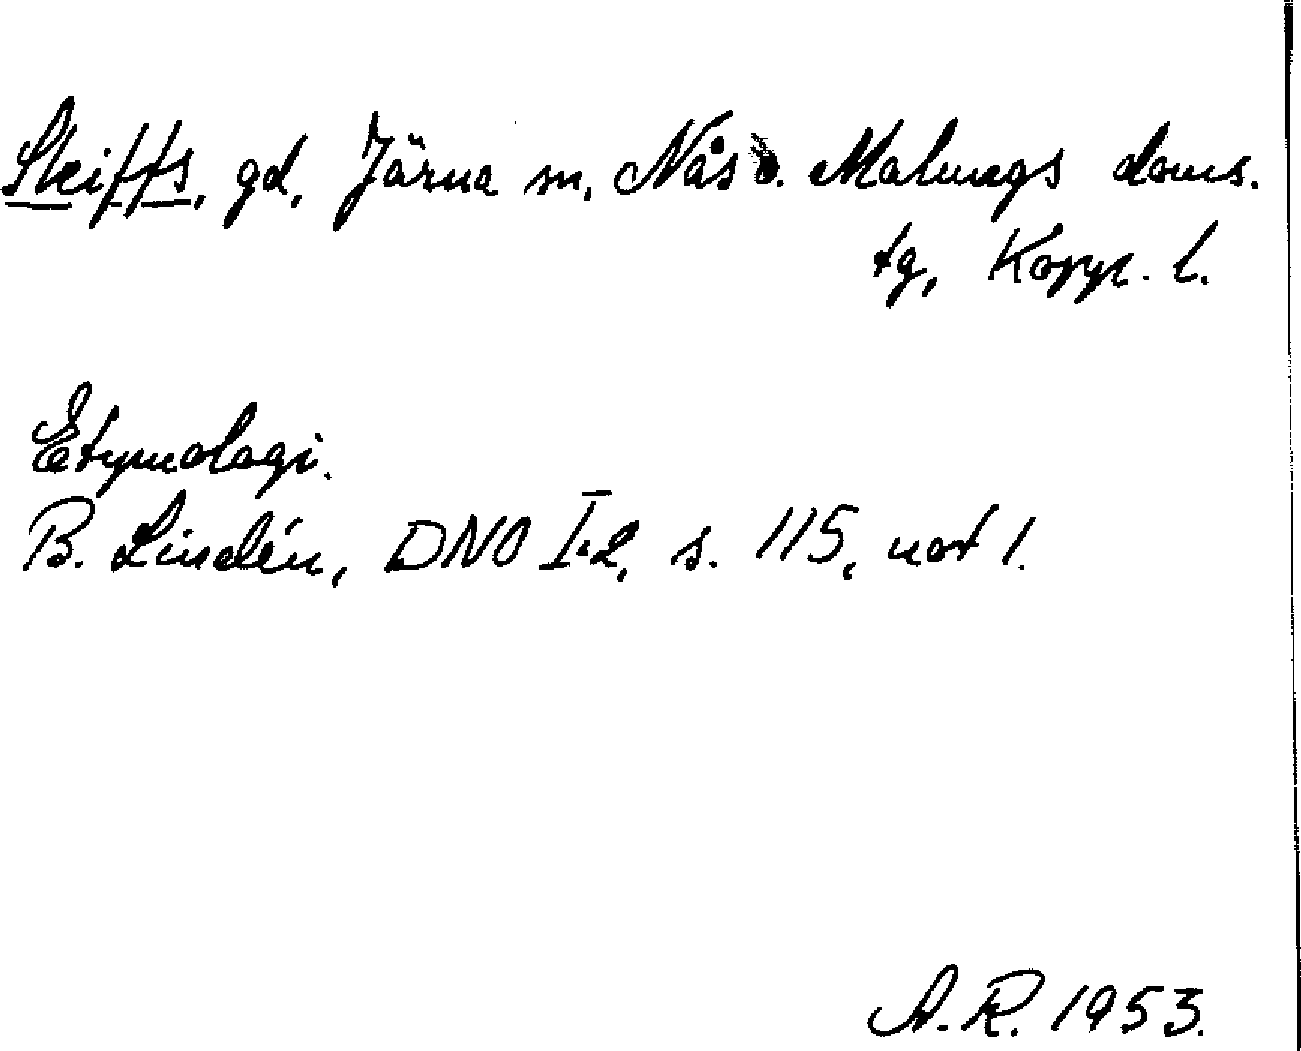 Steiffs, gd, Järna sn, Nås o. Malungs doms.
tg, Kopp. l.
Etymologi.
B. Lindén, DNO I:2, s. 115, not 1.
A. R. 1953.